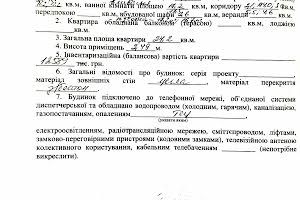 кв.м. ванної кімнати площею кв.м, коридору кв.м.
передпокою кв.м, вбудованої шафи кв.м, веранди кв.м.
2. Квартира обладнана балконом (терасою) кв.м. лоджією
кв.м.
3. Загальна площа квартири 34,2 кв.м.
4. Висота приміщень 2,49 м.
5. Інвентаризаційна (балансова) вартість квартири
тис. грн.
6. Загальні відомості про будинок: серія проекту
матеріал зовнішніх стін цегла, матеріал перекриття
7. Будинок підключено до телефонної мережі, об'єднаної системи
диспетчерської та обладнано водопроводом (холодним, гарячим), каналізацією,
газопостачанням, опаленням
електроосвітленням, радіотрансляційною мережею, сміттєпроводом, ліфтами,
замково-переговорними пристроями (кодовими замками), телевізійною антеною
колективного користування, кабельним телебаченням (непотрібне
викреслити).